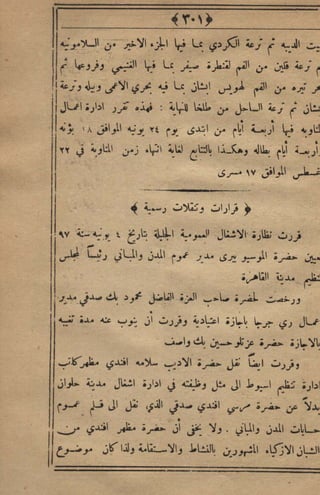 ﴿ ٣٠١ ﴾
يت الديبه ثم ترعة الكردي بما فيها الجزء الاخير من السلامونيه
م ترعة قلين من الفم لقنطرة صيفر بما فيها القنيمي وفروعها ثم
حر تيره من الفم لهويس إبشان بما فيه بحري الاعمى وبيله وترعة
شان ثم ترعة الساحل من طلخا للنهاية : فهذه تقرر ادارة اعمال
لناوبه فيها أربعة أيام من ابتدى يوم ٢٤ يونيه الموافق ١٨ بؤنه
أربعة أيام بطاله وهكذا بالتتابع لغاية انتهاء زمن المناوبة في ٢٢
غسطس الموافق ١٧ مسرى
﴿ قرارات وتنقلات رسمية ﴾
قررت نظارة الاشغال العمومية الجليلة بتاريخ ٤ يونيه سنة ٩٧
عيين حضرة الموسيو بيرى مدير عموم المدن والمباني رئيساً لمجلس
تنظيم مدينة القاهرة
ورخصت لحضرة صاحب العزة الفاضل محمود بك صدقي مدير
عمال ري جرجا باجازة اعتيادية وقررت أن ينوب عنه مدة تغيبه
بالاجازة حضرة عزتلو حسين بك واصف
وقررت ايضاً نقل حضرة الاديب سلامه افندي مظهر كاتب
ادارة تنظيم اسيوط الى مثل وظيفته في ادارة اشغال مدينة حلوان
بدلاً عن حضرة مرسي افندي صدقي الذي نقل الى قلم عموم
حسابات المدن والمباني . ولا يخفى أن حضرة مظهر افندي من
الشبان الازكياء المشهورين بالنشاط والاستقامة ولذا كان موضوع